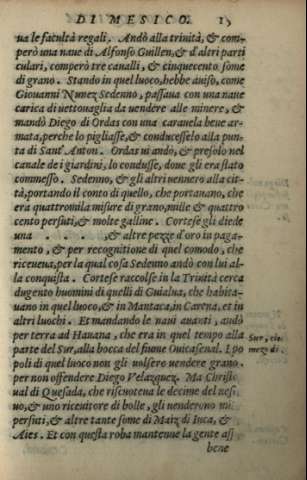 DI MESICO. 15
ua le facultà regali. Andò alla trinità, & com-
però una naue di Alfonso Guillen, & d'altri parti
culari, comperò tre caualli, & cinquecento some
di grano. Stando in quel luoco, hebbe auiso, come
Giouanni Nunez Sedenno, passaua con una naue
carica di uettouaglia da uendere alle minere, &
mandò Diego di Ordas con una carauela bene ar-
mata, perche lo pigliasse, & conducesselo alla pun-
ta di Sant'Anton. Ordas ui andò, & preselo nel
canale de i giardini, lo condusse, doue gli era stato
commesso. Sedenno, & gli altri uennero alla cit-
tà, portando il conto di quello, che portauano, che
era quattromila misure di grano, mille & quattro
cento persuti, & molte galline. Cortese gli diede
una . . . . , & altre pezze d'oro in paga-
mento, & per recognitione di quel comodo, che
riceueua, per la qual cosa Sedenno andò con lui al-
la conquista. Cortese raccolse in la Trinità cerca
dugento huomini di quelli di Guialua, che habita-
uano in quel luoco, & in Mantaca, in Carena, et in
altri luochi. Et mandando le naui auanti, andò
per terra ad Hauana, che era in quel tempo alla
parte del Sur, alla bocca del fiume Onicasenal. I po
poli di quel luoco non gli uolsero uendere grano.
per non offendere Diego Velazquez. Ma Christo
ual di Quesada, che riscuoteua le decime del uesco
uo, & uno riceuitore di bolle, gli uenderono mil
persuti, & altre tante some di Maiz di Iuca, &
Aies. Et con questa roba mantenue la gente assi
bene
Sur, cioe
mezo di.